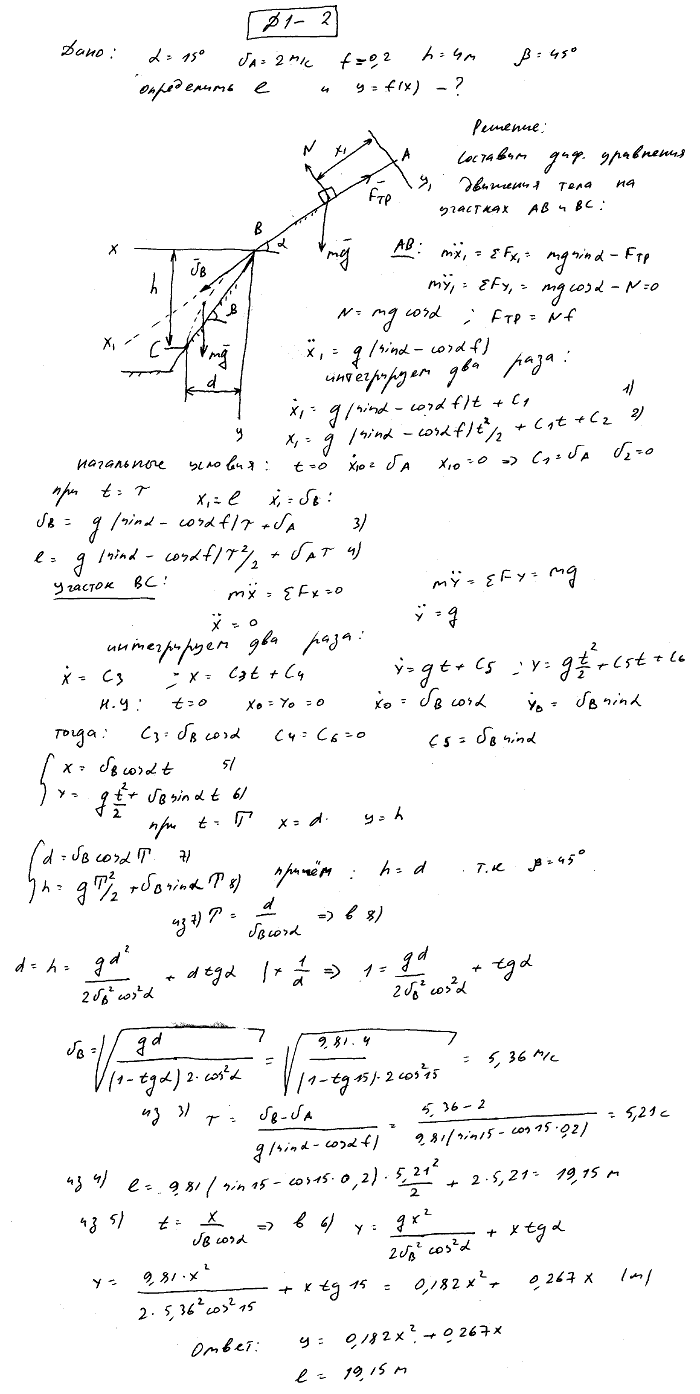 Д1-2
Дано: α=15° υA=2 м/с f=0,2 h=4м β=45°
определить l и y=f(x) - ?
Решение:
Составим диф. уравнения
движения тела на
участках AB и BC:
N x1 A
y1
Fтр
B
α
mg
x
h
υB
β
x1
C
mg
d
y
AB: mẍ1 = ΣFx1 = mg sinα - Fтр
mÿ1 = ΣFy1 = mg cosα - N=0
N = mg cosα ; Fтр = Nf
ẍ1 = g(sinα - cosα f)
интегрируем два раза:
ẋ1 = g(sinα - cosα f)t + C1 1)
x1 = g(sinα - cosα f)t²/2 + C1t + C2 2)
начальные условия: t=0 ẋ10=υA x10=0 => C1=υA υ2=0
при t=τ x1=l ẋ1=υB:
υB = g(sinα - cosα f)τ + υA 3)
l = g(sinα - cosα f)τ²/2 + υAτ 4)
Участок BC: mẍ = ΣFx=0 mÿ = ΣFy = mg
ẍ = 0 ÿ = g
интегрируем два раза:
ẋ = C3 ; x = C3t + C4 ẏ = gt + C5 ; y = gt²/2 + C5t + C6
н.у: t=0 x0=y0=0 ẋ0 = υB cosα ẏ0 = υB sinα
тогда: C3 = υB cosα C4 = C6 = 0 C5 = υB sinα
x = υB cosα t 5)
y = gt²/2 + υB sinα t 6)
при t = T x = d. y = h
d = υB cosα T 7)
h = gT²/2 + υB sinα T 8) причём: h = d т.к β=45°
из 7) T = d/(υB cosα) => в 8)
d = h = gd²/(2υB² cos²α) + d tgα |× 1/d => 1 = gd/(2υB² cos²α) + tgα
υB = √(gd/((1-tgα)2·cos²α)) = √(9,81·4/((1-tg15)·2cos²15)) = 5,36 м/с
из 3) τ = (υB-υA)/(g(sinα - cosα f)) = (5,36-2)/(9,81(sin15 - cos15·0,2)) = 5,21 с
из 4) l = 9,81(sin15 - cos15·0,2)·5,21²/2 + 2·5,21 = 19,15 м
из 5) t = x/(υB cosα) => в 6) y = gx²/(2υB² cos²α) + x tgα
y = 9,81·x²/(2·5,36² cos²15) + x tg15 = 0,182x² + 0,267x (м)
Ответ: y = 0,182x² + 0,267x
l = 19,15 м